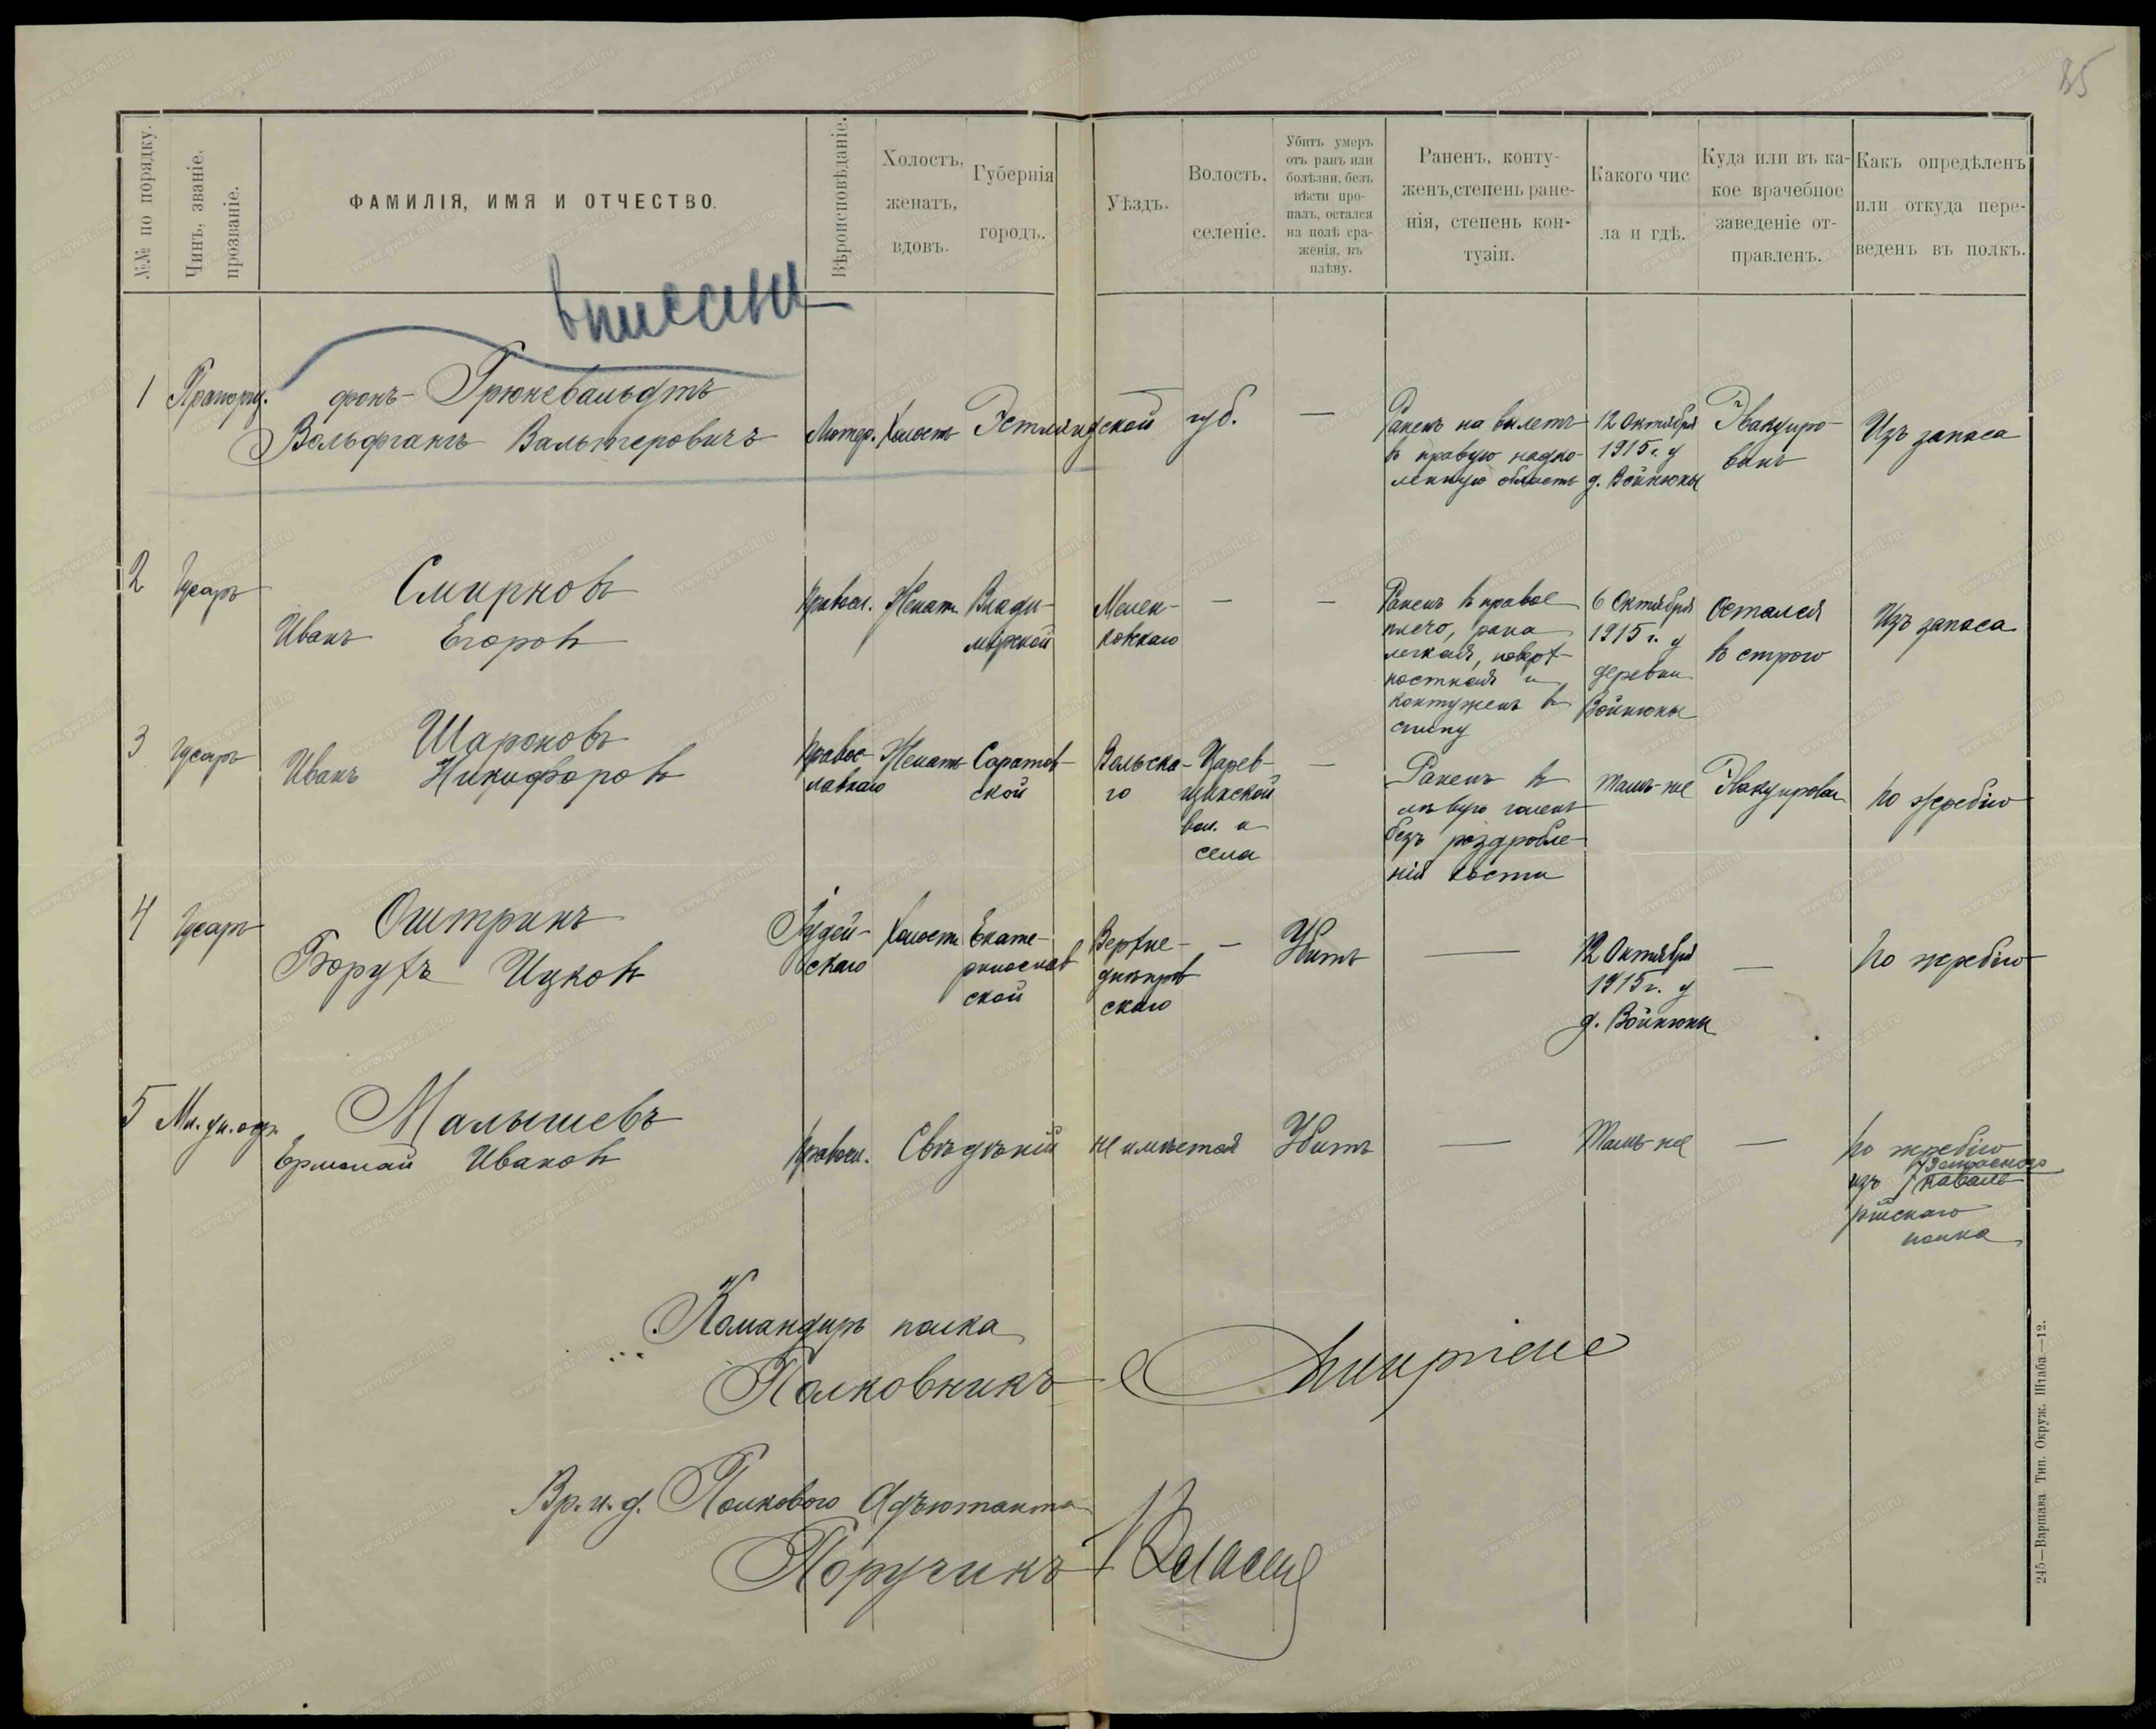 35
№№ по порядку.
Чинъ, званіе, прозваніе.
ФАМИЛІЯ, ИМЯ И ОТЧЕСТВО.
Вѣроисповѣданіе.
Холостъ, женатъ, вдовъ.
Губернія городъ.
Уѣздъ.
Волость, селеніе.
Убитъ умеръ
отъ ранъ или
болѣзни, безъ
вѣсти про-
палъ, остался
на полѣ сра-
женія, въ
плѣну.
Раненъ, конту-
женъ, степень ране-
нія, степень кон-
тузіи.
Какого чис
ла и гдѣ.
Куда или въ ка-
кое врачебное
заведеніе от-
правленъ.
Какъ опредѣленъ
или откуда пере-
веденъ въ полкъ.
вписаны
1 Прапорщ. фонъ-Грюневальдтъ
Вольфгангъ Вальтеровичъ
Лютер. Холостъ Эстляндской губ. —
Раненъ на вылетъ
въ правую надко-
ленную область
12 Октября
1915 г. у
д. Войнюны
Эвакуиро-
ванъ
Изъ запаса
2 Гусаръ Смирновъ
Иванъ Егоровъ
Правосл. Женатъ Влади-
мірской
Мелен-
ковскаго
— —
Раненъ въ правое
плечо, рана
легкая, поверх-
ностная и
контуженъ въ
спину
6 Октября
1915 г. у
деревни
Войнюны
Остался
въ строю
Изъ запаса
3 Гусаръ Шароновъ
Иванъ Никифоровъ
Правос-
лавнаго
Женатъ Саратов-
ской
Вольска-
го
Царев-
щинской
вол. и
села
—
Раненъ въ
лѣвую голень
безъ раздробле-
нія кости
тамъ-же Эвакуирован По жребію
4 Гусаръ Оштринъ
Борухъ Ицковъ
Іудей-
скаго
Холостъ Екате-
ринослав
ской
Верхне-
днѣпров
скаго
— Убитъ —
12 Октября
1915 г. у
д. Войнюны
— По жребію
5 Мл. ун. оф. Малышевъ
Ермолай Ивановъ
Правосл. Свѣдѣній не имѣется Убитъ — Тамъ-же —
По жребію
изъ 7 Запаснаго
кавале
рійскаго
полка
Командиръ полка
Полковникъ
Вр. и. д. Полкового Адъютанта
Поручикъ
245—Варшава. Тип. Окруж. Штаба.—12.